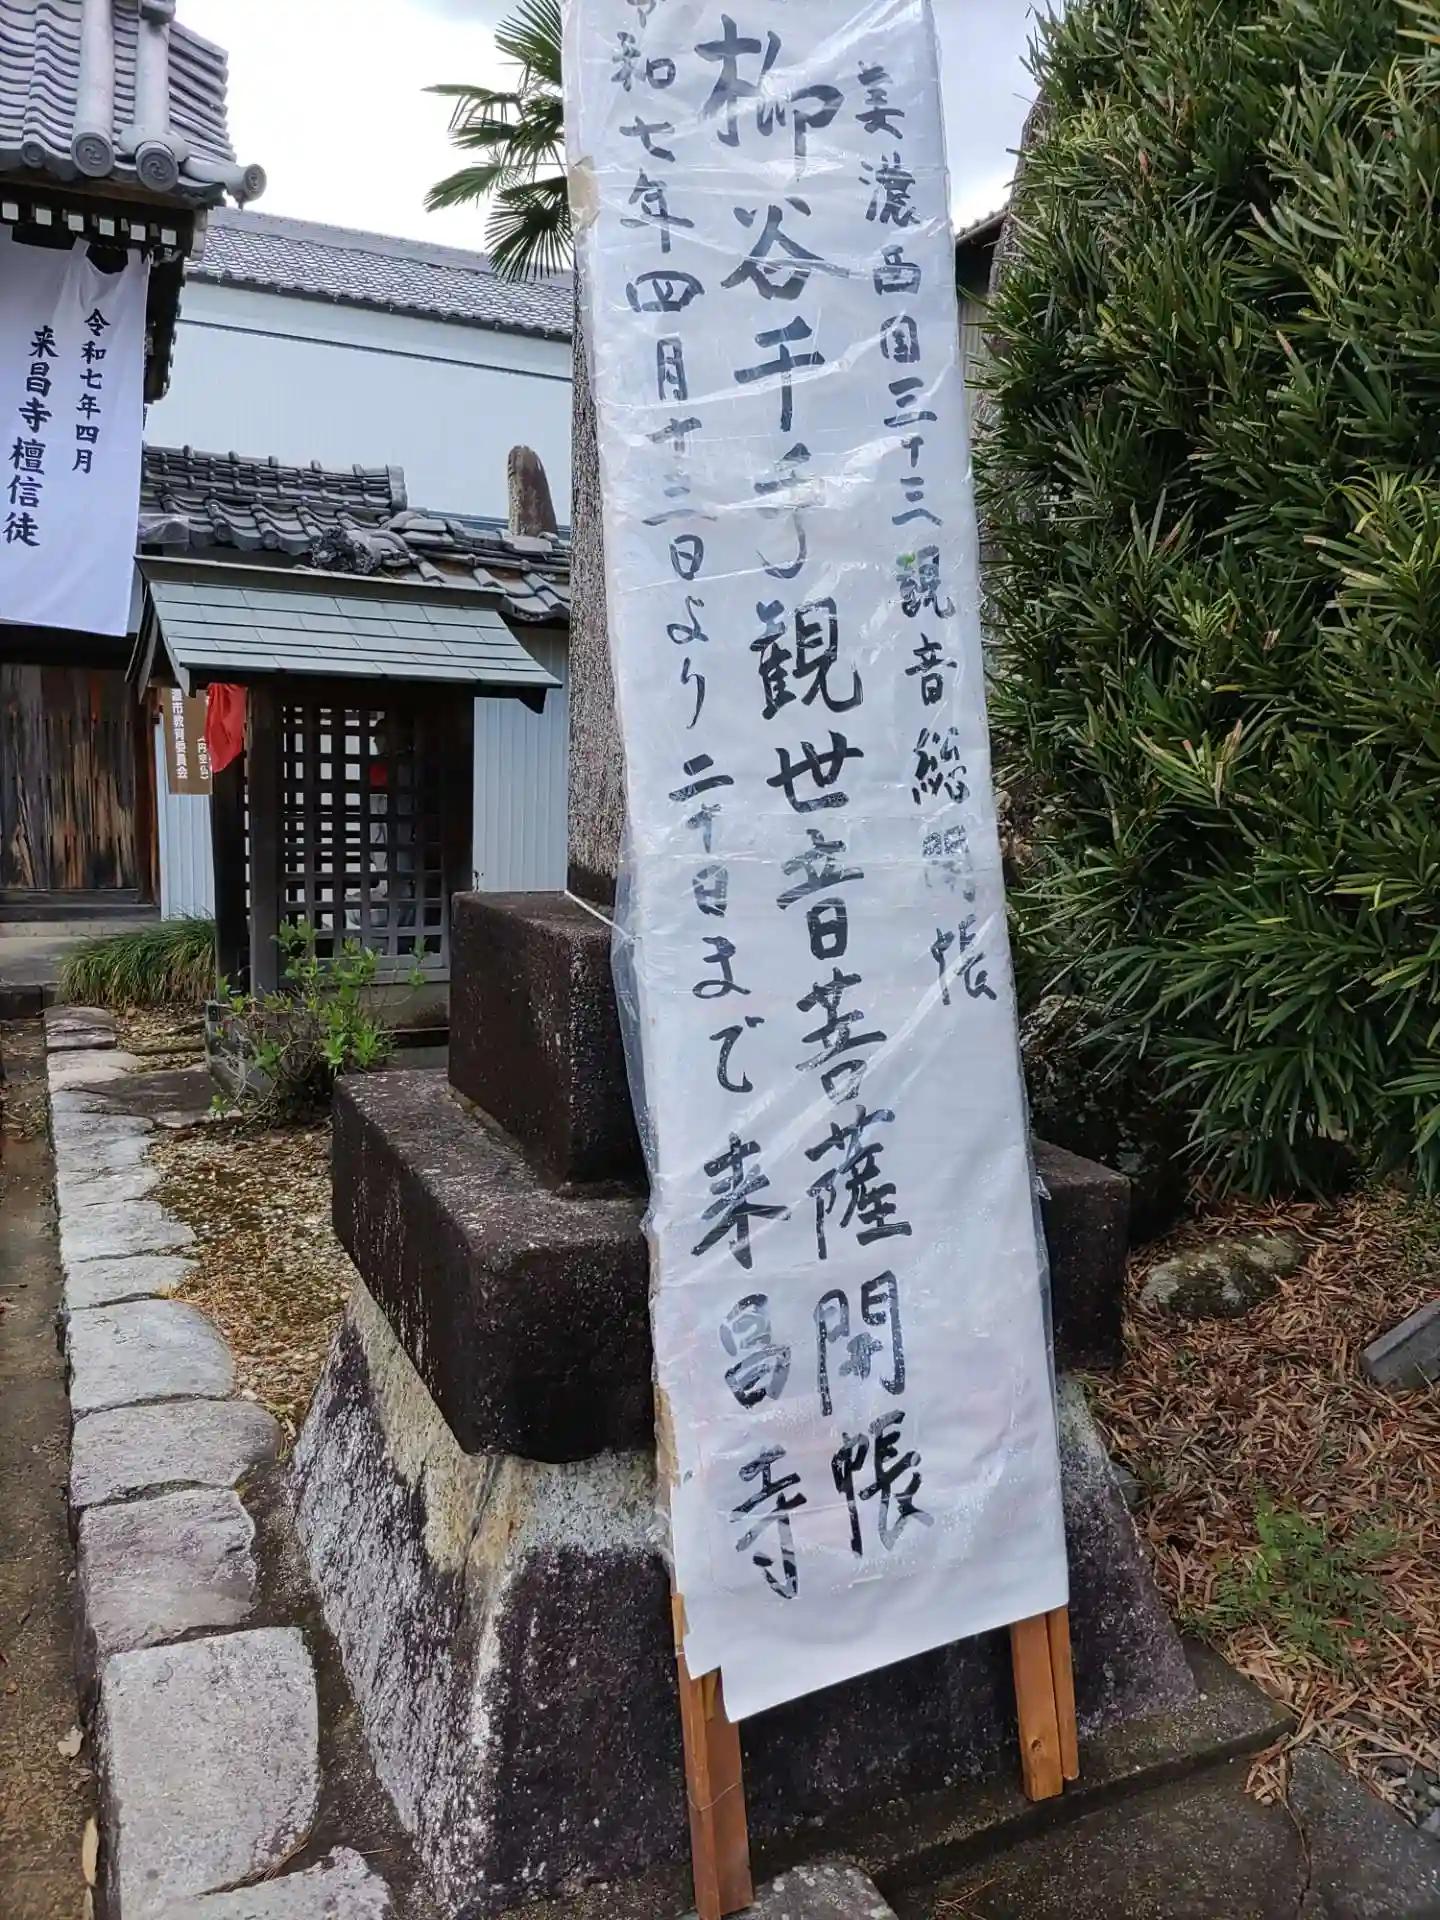 美濃西国三十三観音総開帳
柳谷千手観世音菩薩開帳
令和七年四月十三日より二十日まで
来昌寺
令和七年四月
来昌寺檀信徒
市教育委員会
(円空仏)